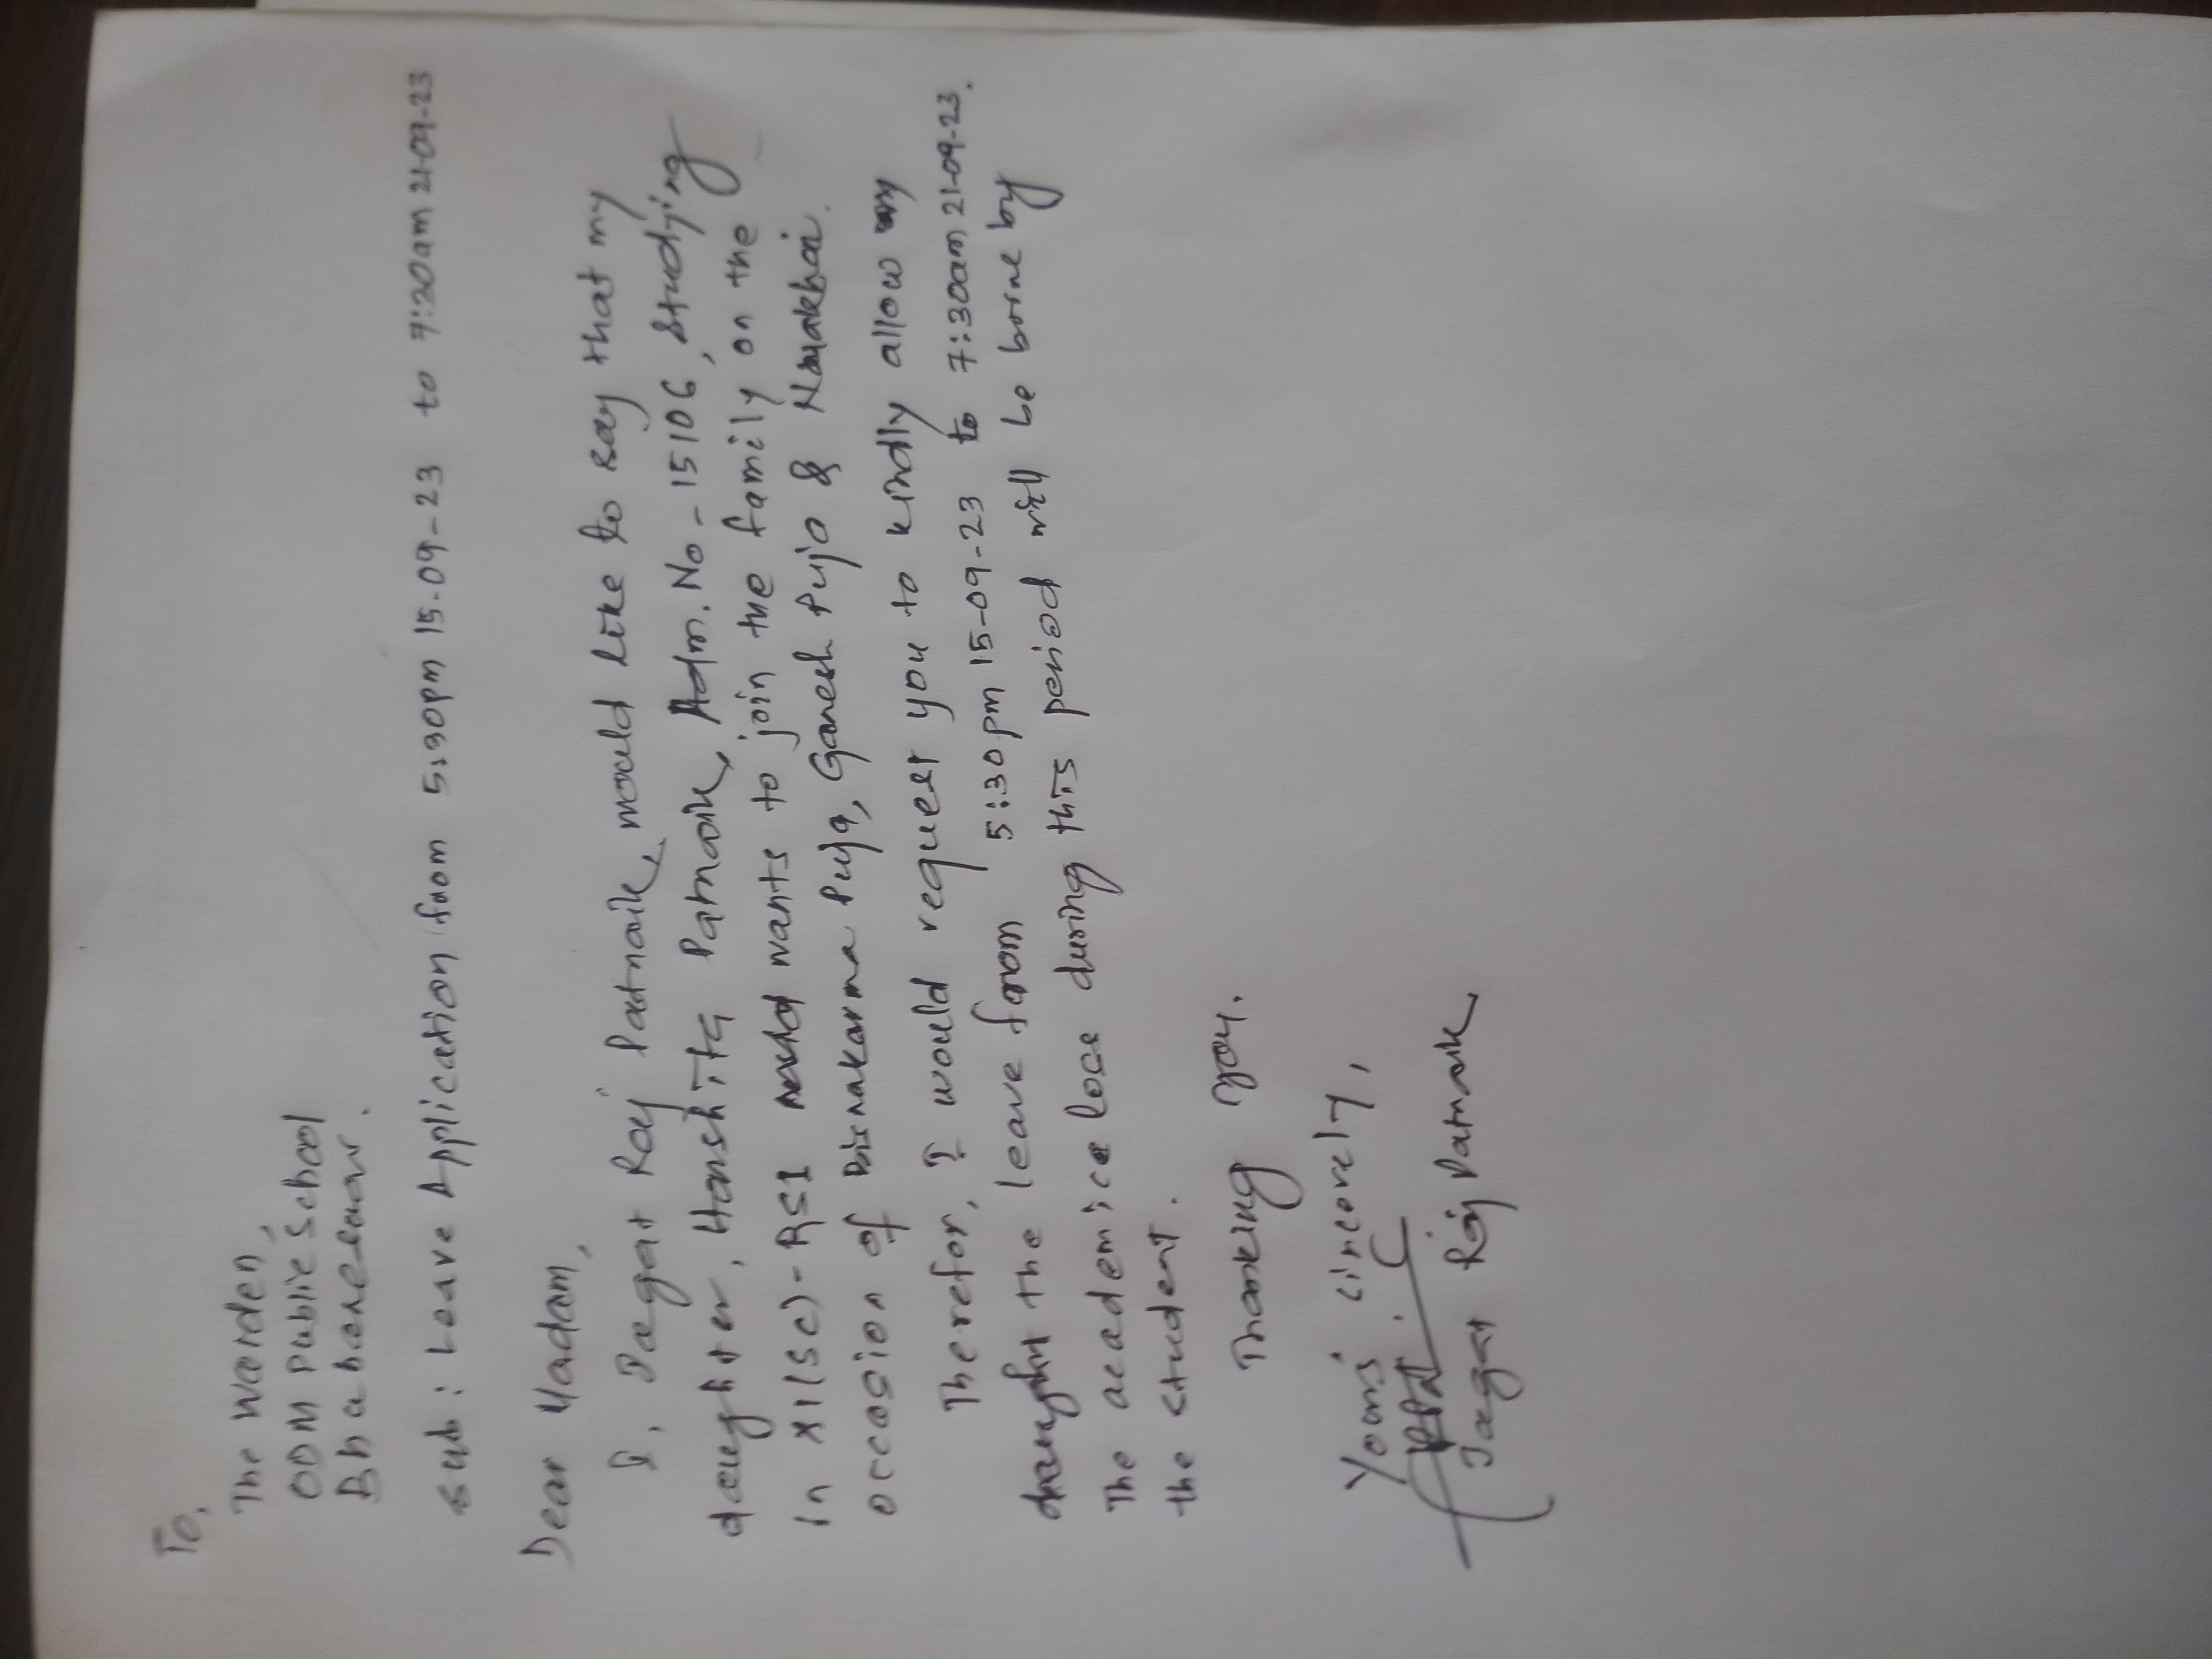 To,
The Warden,
ODM Public School
Bhubaneswar.
Sub: Leave Application from 5:30pm 15-09-23 to 7:30am 21-09-23
Dear Madam,
I, Jagat Raj Patnaik, would like to say that my
daughter, Harshita Patnaik, Adm. No - 15106, studying
in XI(Sc)-RS1 wants to join the family on the
occasion of Biswakarma Puja, Ganesh Puja & Nuakhai.
Therefor, I would request you to kindly allow my
daught the leave from 5:30pm 15-09-23 to 7:30am 21-09-23.
The academice loss during this period will be borne by
the student.
Thanking you.
Yours sincerely,
Jagat Raj Patnaik